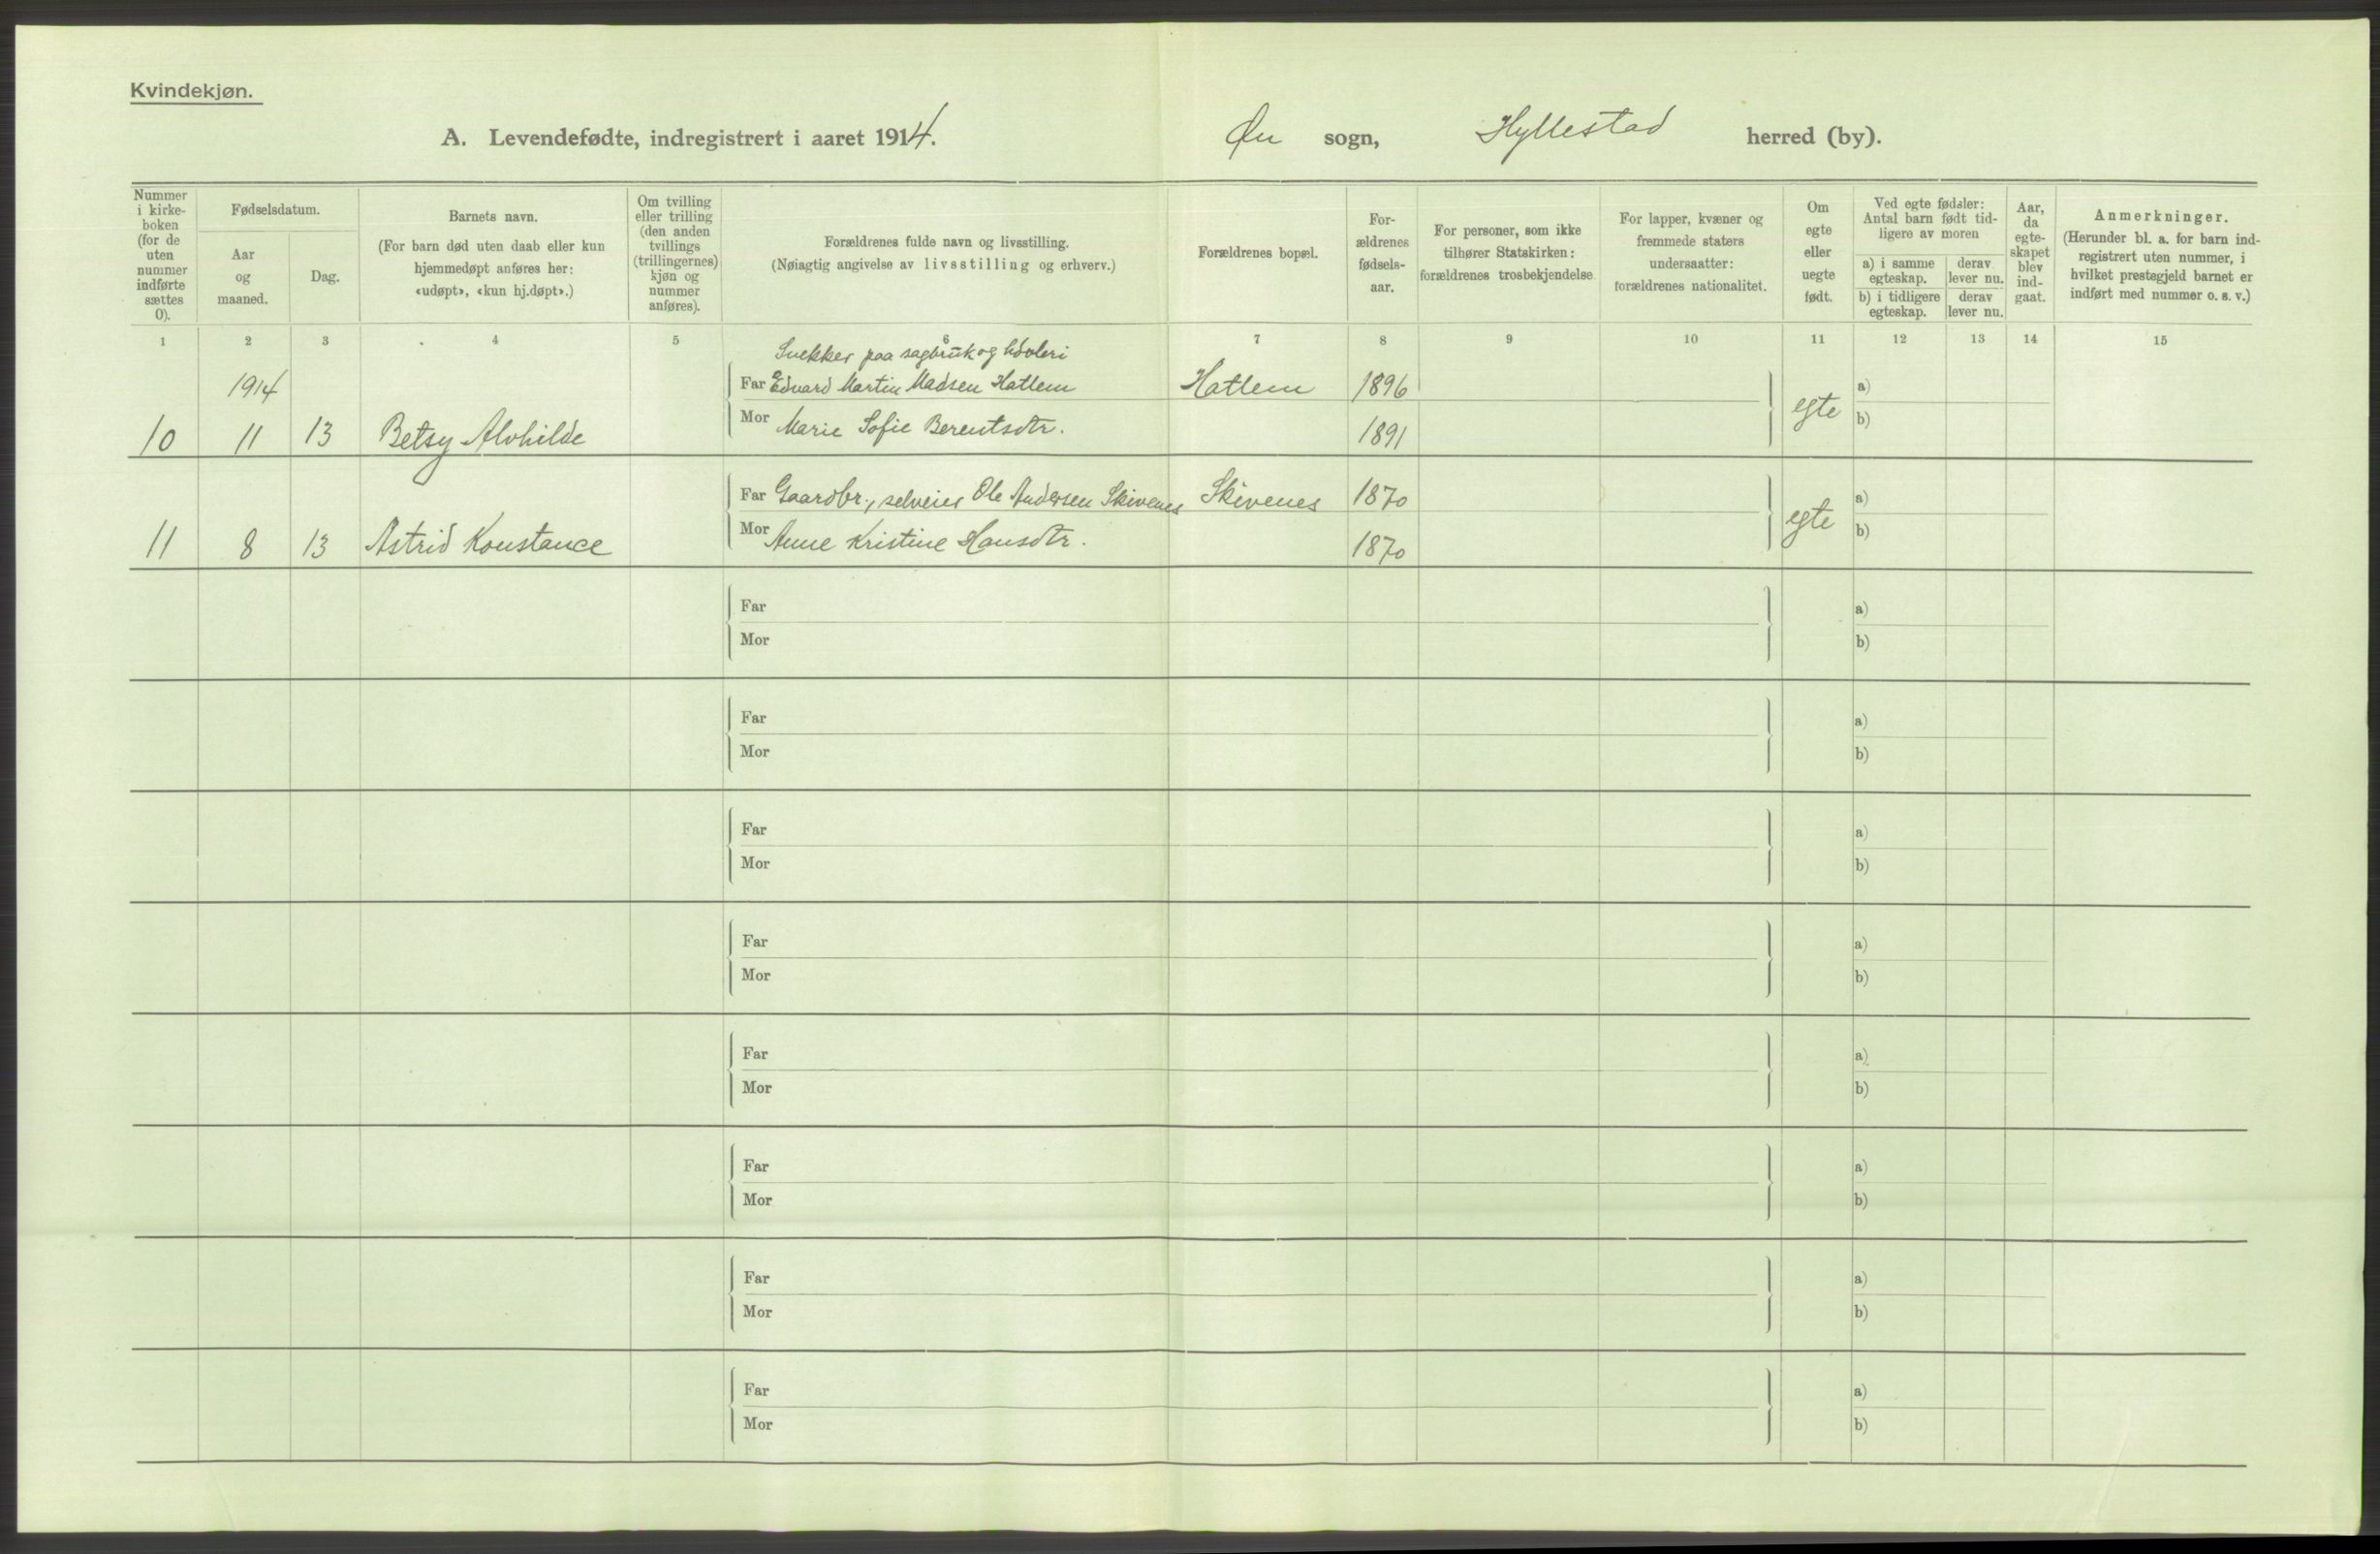 Kvindekjøn.
A. Levendefødte, indregistrert i aaret 1914. Øn sogn, Hyllestad herred (by).
Nummer i kirke- boken (for de uten nummer indførte sættes 0).
Fødselsdatum.
Aar og maaned.
Dag.
Barnets navn.
(For barn død uten daab eller kun hjemmedøpt anføres her: «udøpt», «kun hj.døpt».)
Om tvilling eller trilling (den anden tvillings (trillingernes) kjøn og nummer anføres).
Forældrenes fulde navn og livsstilling.
(Nøiagtig angivelse av livsstilling og erhverv.)
Forældrenes bopæl.
For- ældrenes fødsels- aar.
For personer, som ikke tilhører Statskirken: forældrenes trosbekjendelse
For lapper, kvæner og fremmede staters undersaatter: forældrenes nationalitet.
Om egte eller uegte født.
Ved egte fødsler: Antal barn født tid- ligere av moren
a) i samme egteskap. derav lever nu.
b) i tidligere egteskap. derav lever nu.
Aar, da egte- skapet blev ind- gaat.
Anmerkninger.
(Herunder bl. a. for barn ind- registrert uten nummer, i hvilket prestegjeld barnet er indført med nummer o. s. v.)
1 2 3 4 5 6 7 8 9 10 11 12 13 14 15
Snekker paa sagbruk og høvleri
1914 Far Edvard Martin Madsen Hatlem Hatlem 1896 egte a)
10 11 13 Betsy Alvhilde Mor Marie Sofie Berentsdtr. 1891 b)
Far Gaardbr., selveier Ole Andersen Skivenes Skivenes 1870 egte a)
11 8 13 Astrid Konstance Mor Anne Kristine Hansdtr. 1870 b)
Far a)
Mor b)
Far a)
Mor b)
Far a)
Mor b)
Far a)
Mor b)
Far a)
Mor b)
Far a)
Mor b)
Far a)
Mor b)
Far a)
Mor b)